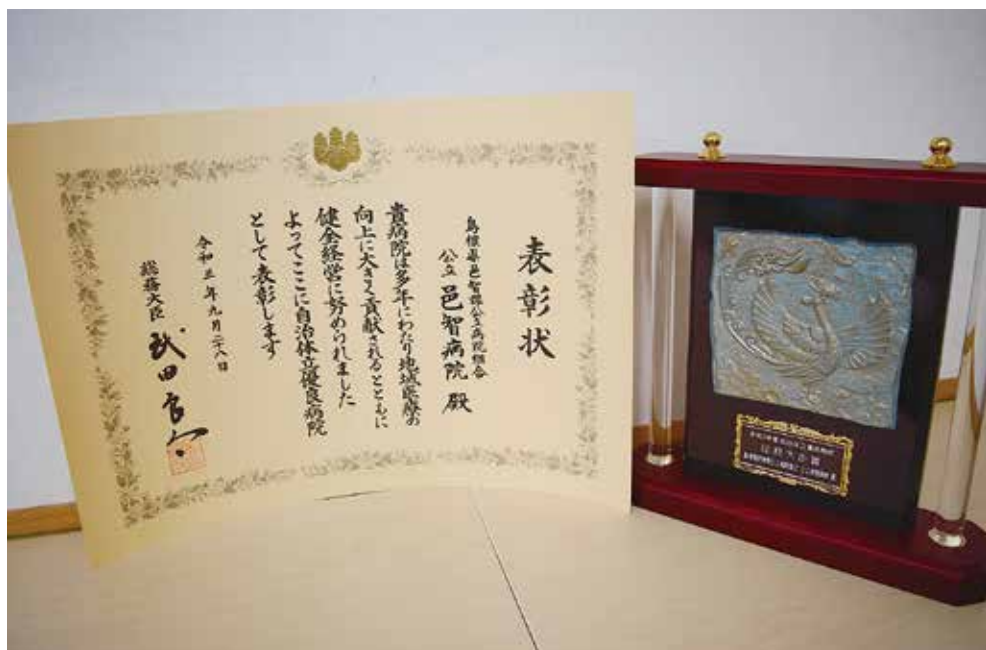 表彰状
島根県邑智郡公立病院組合
公立邑智病院 殿
貴病院は多年にわたり地域医療の
向上に大きく貢献されるとともに
健全経営に努められました
よってここに自治体立優良病院
として表彰します
令和三年九月二十八日
総務大臣 武田良太
総務大臣賞